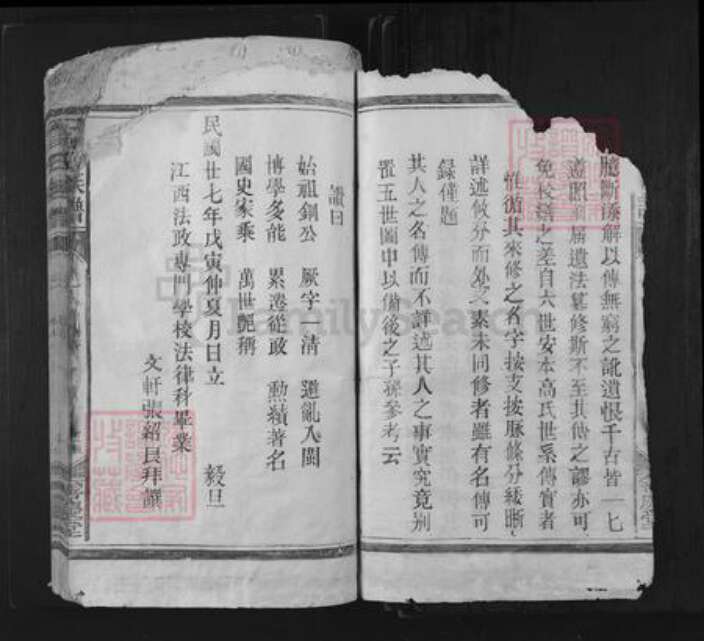 臆斷湊解以傳無窮之訛遺恨千古皆一七
遵照前屆遺法纂修斯不至其傳之謬亦可
免校讎之差自六世安本高氏世系傳實者
惟循其來修之名字按支按脉條分縷晰
詳述攸分而外 素未同修者雖有名傳可
録僅題
其人之名傳而不詳述其人之事實究竟別
置五世圖中以備後之子孫參考云
讚曰
始祖鋼公 厥字一清 避亂入閩
博學多能 累遷從政 勳績著名
國史家乘 萬世艷稱
民國廿七年戊寅仲夏月日立 穀旦
江西法政專門學校法律科畢業
文軒張紹良拜撰
FamilySearch